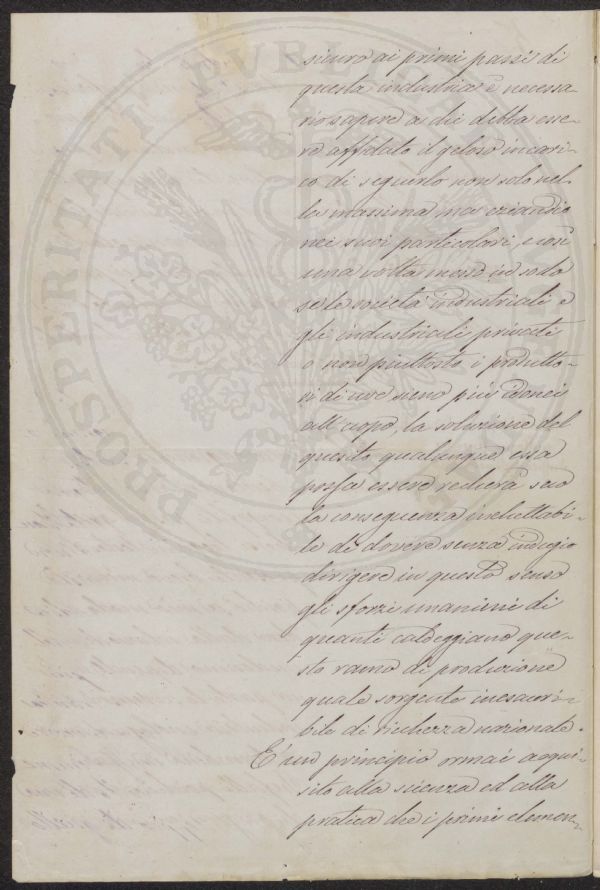 sicuro ai primi passi di
questa industria è necessa-
rio sapere a chi debba esse-
re affidato il geloso incari-
co di seguirlo non solo nel-
la massima ma eziandio
nei suoi particolari, e così
una volta messo in sodo
se le società industriali e
gli industriali privati
o non piuttosto i produtto-
ri di uve sieno più idonei
all'uopo, la soluzione del
quesito qualunque essa
possa essere recherà seco
la conseguenza ineluttabi-
le di dovere senza indugio
dirigere in questo senso
gli sforzi unanimi di
quanti caldeggiano que-
sto ramo di produzione
quale sorgente inesauri-
bile di ricchezza nazionale.
E' un principio ormai acqui-
sito alla scienza ed alla
pratica che i primi elemen-
PROSPERITATI PUBLICAE